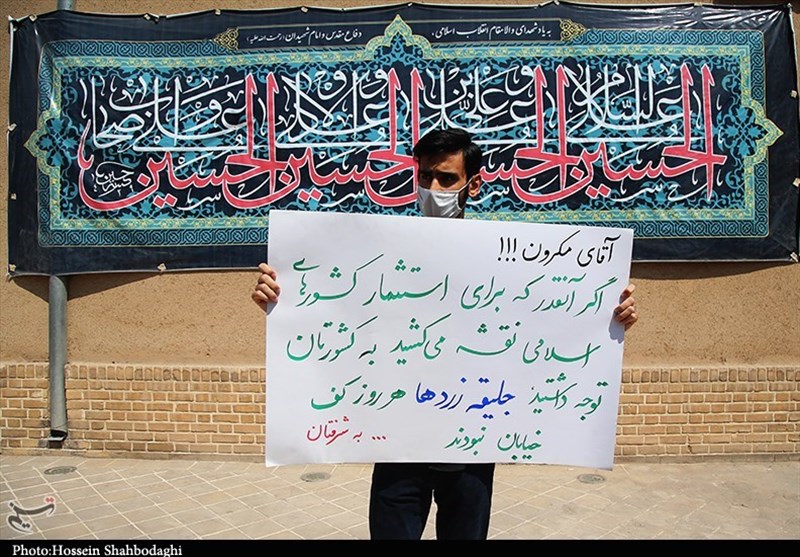 به یاد شهدای والامقام انقلاب اسلامی، دفاع مقدس و امام شهیدان (رحمت الله علیه)
السلام علی الحسین و علی علی بن الحسین و علی اولاد الحسین و علی اصحاب الحسین
آقای مکرون !!!
اگر آنقدر که برای استثمار کشورهای
اسلامی نقشه می‌کشید به کشورتان
توجه داشتید جلیقه زردها هر روز کف
خیابان نبودند
... به شرفتان
تسنیم
Photo:Hossein Shahbodaghi